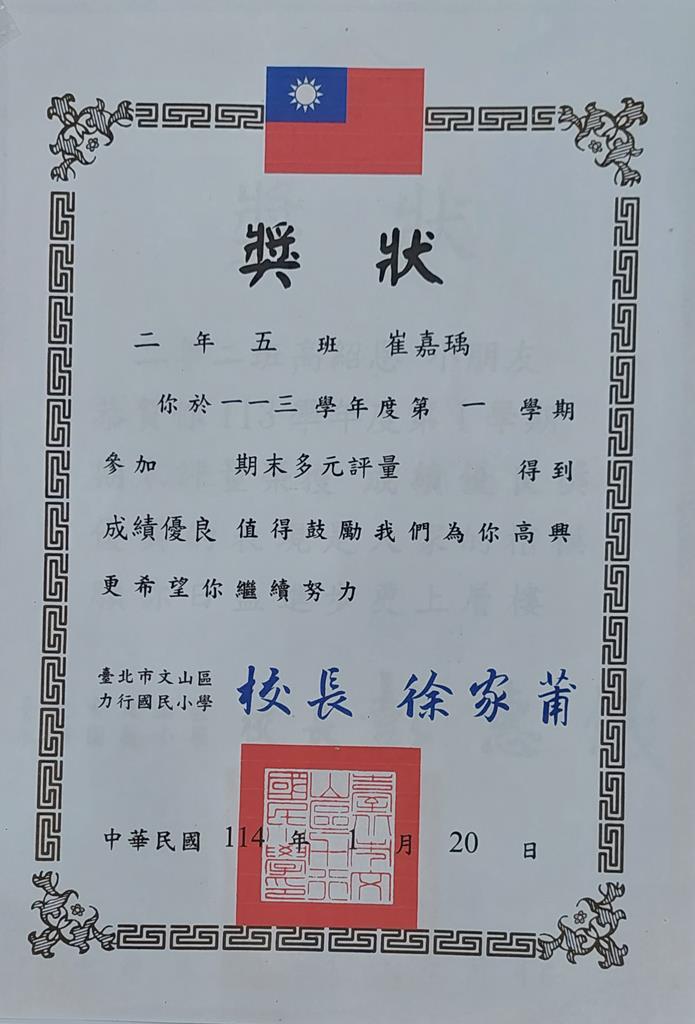 獎狀
二年五班 崔嘉瑀
你於一一三學年度第一學期
參加 期末多元評量 得到
成績優良 值得鼓勵我們為你高興
更希望你繼續努力
臺北市文山區
力行國民小學
校長 徐家莆
中華民國 114 年 1 月 20 日